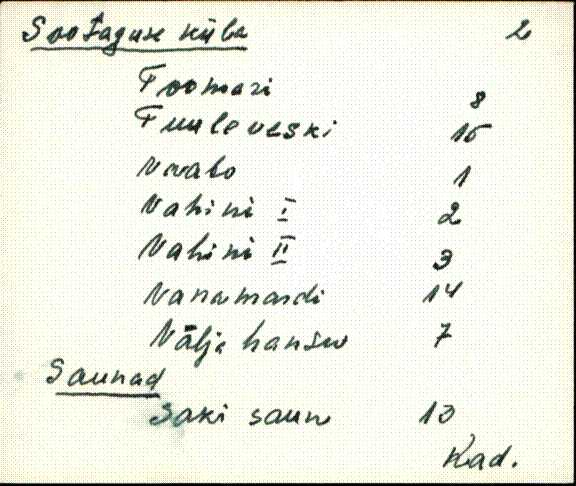 Sootaguse küla 2
Toomari 8
Tuuleveski 15
Vaabo 1
Vahini I 2
Vahini II 3
Vanamardi 14
Välja hansu 7
Saunad
Saki saun 13
Kad.